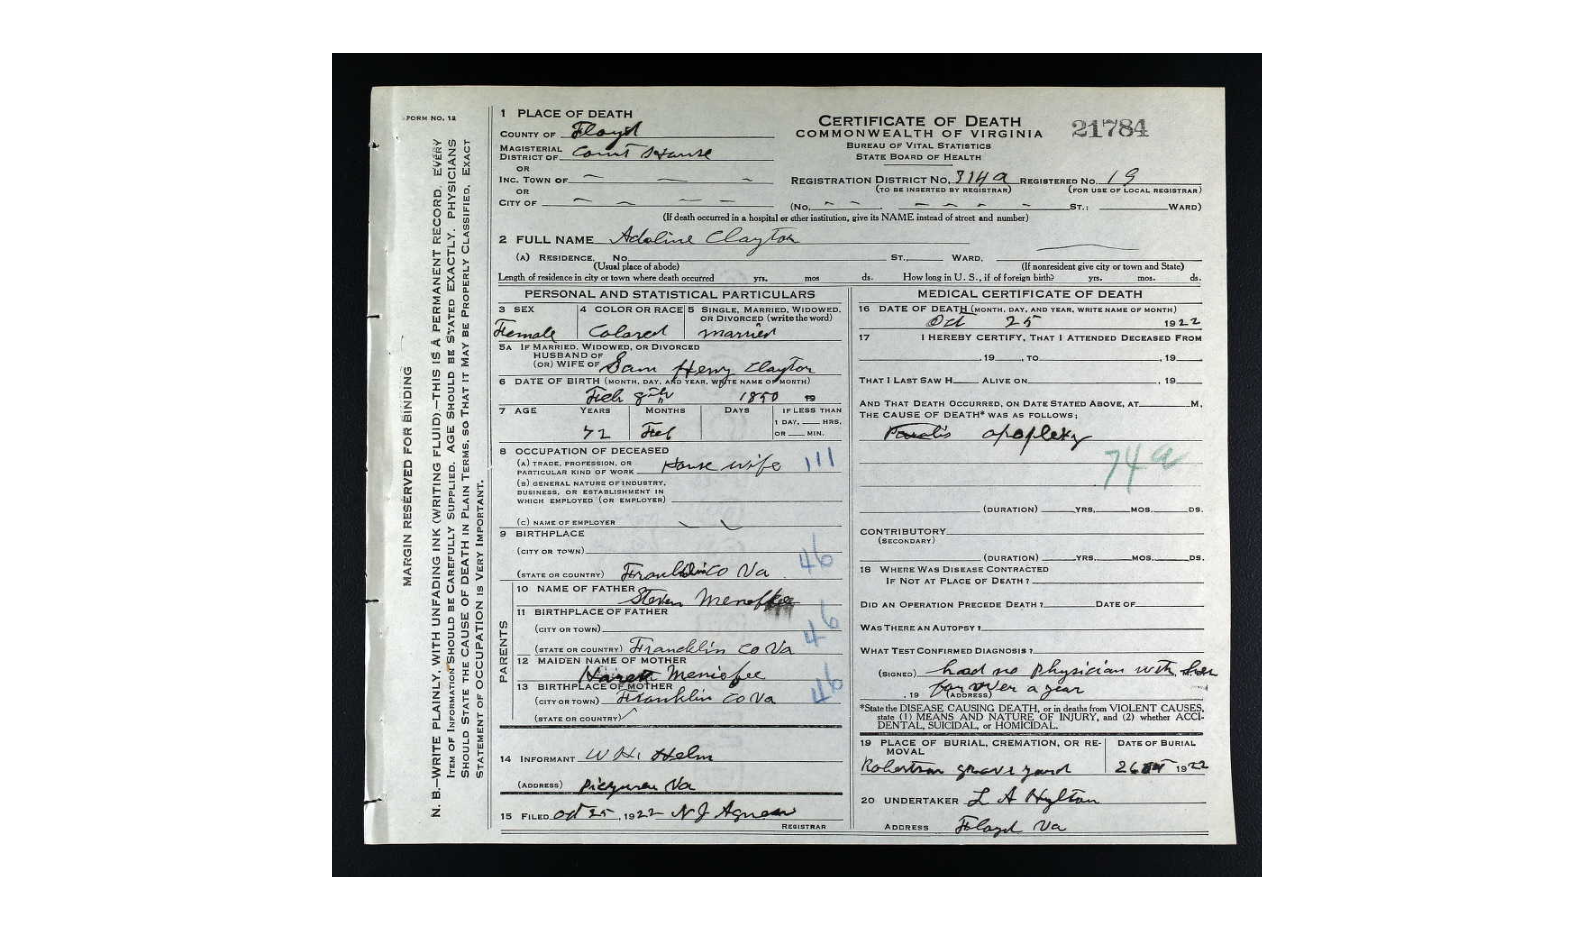 FORM NO. 12
MARGIN RESERVED FOR BINDING
N. B.—WRITE PLAINLY, WITH UNFADING INK (WRITING FLUID)—THIS IS A PERMANENT RECORD. EVERY
ITEM OF INFORMATION SHOULD BE CAREFULLY SUPPLIED. AGE SHOULD BE STATED EXACTLY. PHYSICIANS
SHOULD STATE THE CAUSE OF DEATH IN PLAIN TERMS, SO THAT IT MAY BE PROPERLY CLASSIFIED. EXACT
STATEMENT OF OCCUPATION IS VERY IMPORTANT.
1 PLACE OF DEATH
COUNTY OF Floyd
MAGISTERIAL
DISTRICT OF Court House
OR
INC. TOWN OF
OR
CITY OF
CERTIFICATE OF DEATH
COMMONWEALTH OF VIRGINIA
BUREAU OF VITAL STATISTICS
STATE BOARD OF HEALTH
21784
REGISTRATION DISTRICT NO. 314a REGISTERED NO. 19
(TO BE INSERTED BY REGISTRAR) (FOR USE OF LOCAL REGISTRAR)
(NO. ST.; WARD)
(If death occurred in a hospital or other institution, give its NAME instead of street and number)
2 FULL NAME Adaline Clayton
(A) RESIDENCE. NO. ST. WARD.
(Usual place of abode) (If nonresident give city or town and State)
Length of residence in city or town where death occurred yrs. mos ds. How long in U. S., if of foreign birth? yrs. mos. ds.
PERSONAL AND STATISTICAL PARTICULARS
3 SEX
Female
4 COLOR OR RACE
Colored
5 SINGLE, MARRIED, WIDOWED,
OR DIVORCED (write the word)
married
5A IF MARRIED, WIDOWED, OR DIVORCED
HUSBAND OF
(OR) WIFE OF Sam Henry Clayton
6 DATE OF BIRTH (MONTH, DAY, AND YEAR, WRITE NAME OF MONTH)
1850 19
7 AGE YEARS MONTHS DAYS IF LESS THAN
1 DAY, HRS.
OR MIN.
72
8 OCCUPATION OF DECEASED
(A) TRADE, PROFESSION, OR
PARTICULAR KIND OF WORK House wife 111
(B) GENERAL NATURE OF INDUSTRY,
BUSINESS, OR ESTABLISHMENT IN
WHICH EMPLOYED (OR EMPLOYER)
(C) NAME OF EMPLOYER
9 BIRTHPLACE
(CITY OR TOWN) 46
(STATE OR COUNTRY) Franklin Co Va
PARENTS
10 NAME OF FATHER Steven
11 BIRTHPLACE OF FATHER
(CITY OR TOWN) 46
(STATE OR COUNTRY) Francklin Co Va
12 MAIDEN NAME OF MOTHER
Meniefee
13 BIRTHPLACE OF MOTHER 46
(CITY OR TOWN) Franklin Co Va
(STATE OR COUNTRY)
14 INFORMANT W H. Helm
(ADDRESS) Va
15 FILED Oct 25, 1922 N J Agnew
REGISTRAR
MEDICAL CERTIFICATE OF DEATH
16 DATE OF DEATH (MONTH, DAY, AND YEAR, WRITE NAME OF MONTH)
Oct 25 1922
17 I HEREBY CERTIFY, THAT I ATTENDED DECEASED FROM
, 19 , TO , 19
THAT I LAST SAW H ALIVE ON , 19
AND THAT DEATH OCCURRED, ON DATE STATED ABOVE, AT M.
THE CAUSE OF DEATH* WAS AS FOLLOWS:
apoplexy
74a
(DURATION) YRS. MOS. DS.
CONTRIBUTORY
(SECONDARY)
(DURATION) YRS. MOS. DS.
18 WHERE WAS DISEASE CONTRACTED
IF NOT AT PLACE OF DEATH?
DID AN OPERATION PRECEDE DEATH? DATE OF
WAS THERE AN AUTOPSY?
WHAT TEST CONFIRMED DIAGNOSIS?
(SIGNED) had no Physician with her
, 19 (ADDRESS) for over a year
*State the DISEASE CAUSING DEATH, or in deaths from VIOLENT CAUSES,
state (1) MEANS AND NATURE OF INJURY, and (2) whether ACCI-
DENTAL, SUICIDAL, or HOMICIDAL.
19 PLACE OF BURIAL, CREMATION, OR RE-
MOVAL
Robertson grave yard
DATE OF BURIAL
26 1922
20 UNDERTAKER L A Hylton
ADDRESS Floyd Va